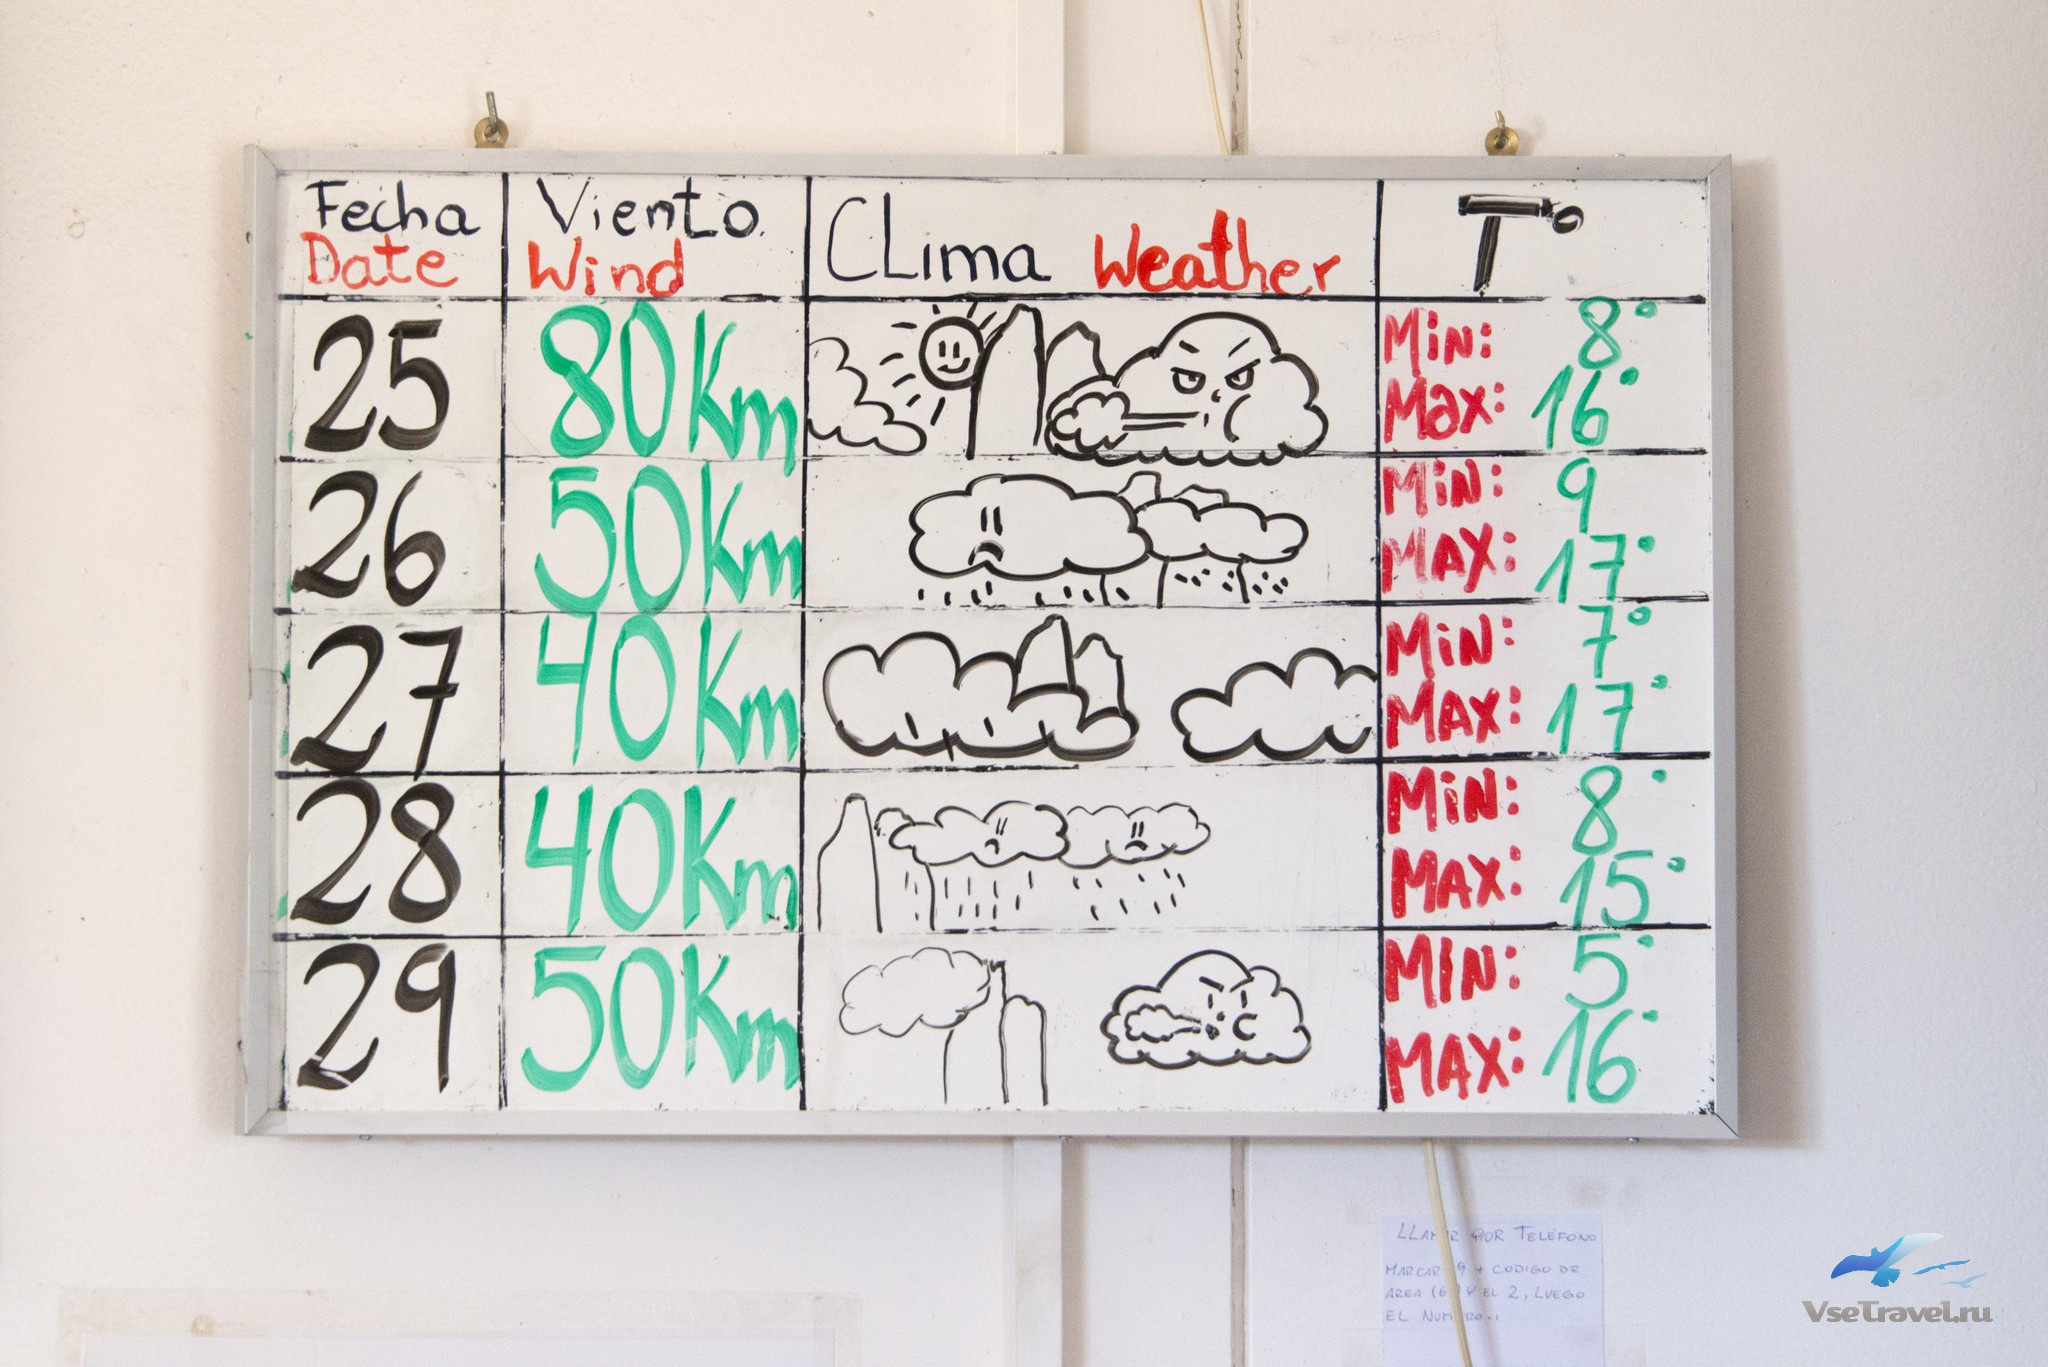 Fecha Viento CLima T°
Date Wind Weather
25 80Km Min: 8°
Max: 16°
26 50Km MiN: 9
MAX: 17°
27 40Km MiN: 7°
MAX: 17°
28 40Km MiN: 8°
MAX: 15°
29 50Km MIN: 5°
MAX: 16°
POR TELÉFONO
9 + CODIGO DE
AREA Y EL 2, LUEGO
EL
VseTravel.ru